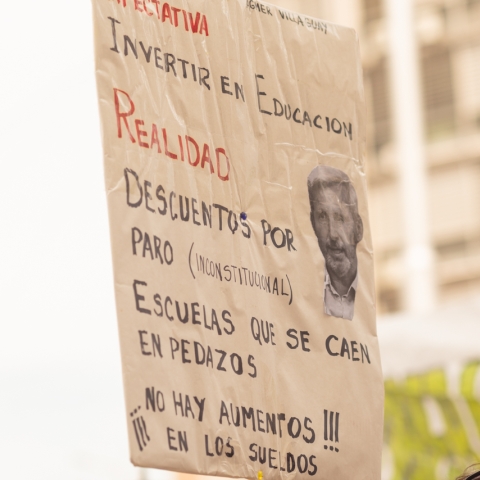 PECTATIVA
INVERTIR EN EDUCACION
REALIDAD
DESCUENTOS POR
PARO (INCONSTITUCIONAL)
ESCUELAS QUE SE CAEN
EN PEDAZOS
¡¡¡ NO HAY AUMENTOS !!!
EN LOS SUELDOS